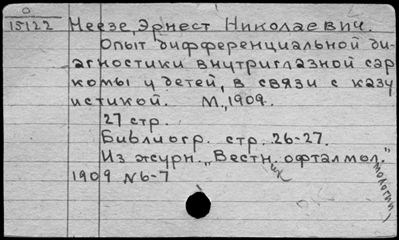 О
15122 Неезе, Эрнест Николаевич.
Опыт дифференциальной ди-
агностики внутриглазной сар
комы у детей, в связи с казу
истикой. М., 1909.
27 стр.
Библиогр. стр. 26-27.
Из журн. „Вестн. офталмол."
их мологии,
1909 N6-7